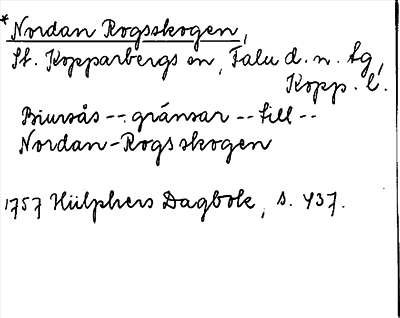 *Nordan Rogsskogen,
St. Kopparbergs sn, Falu d. n. tg,
Kopp. l.
Biursås -- gränsar -- till --
Nordan-Rogsskogen
1757 Hülphers Dagbok, s. 437.